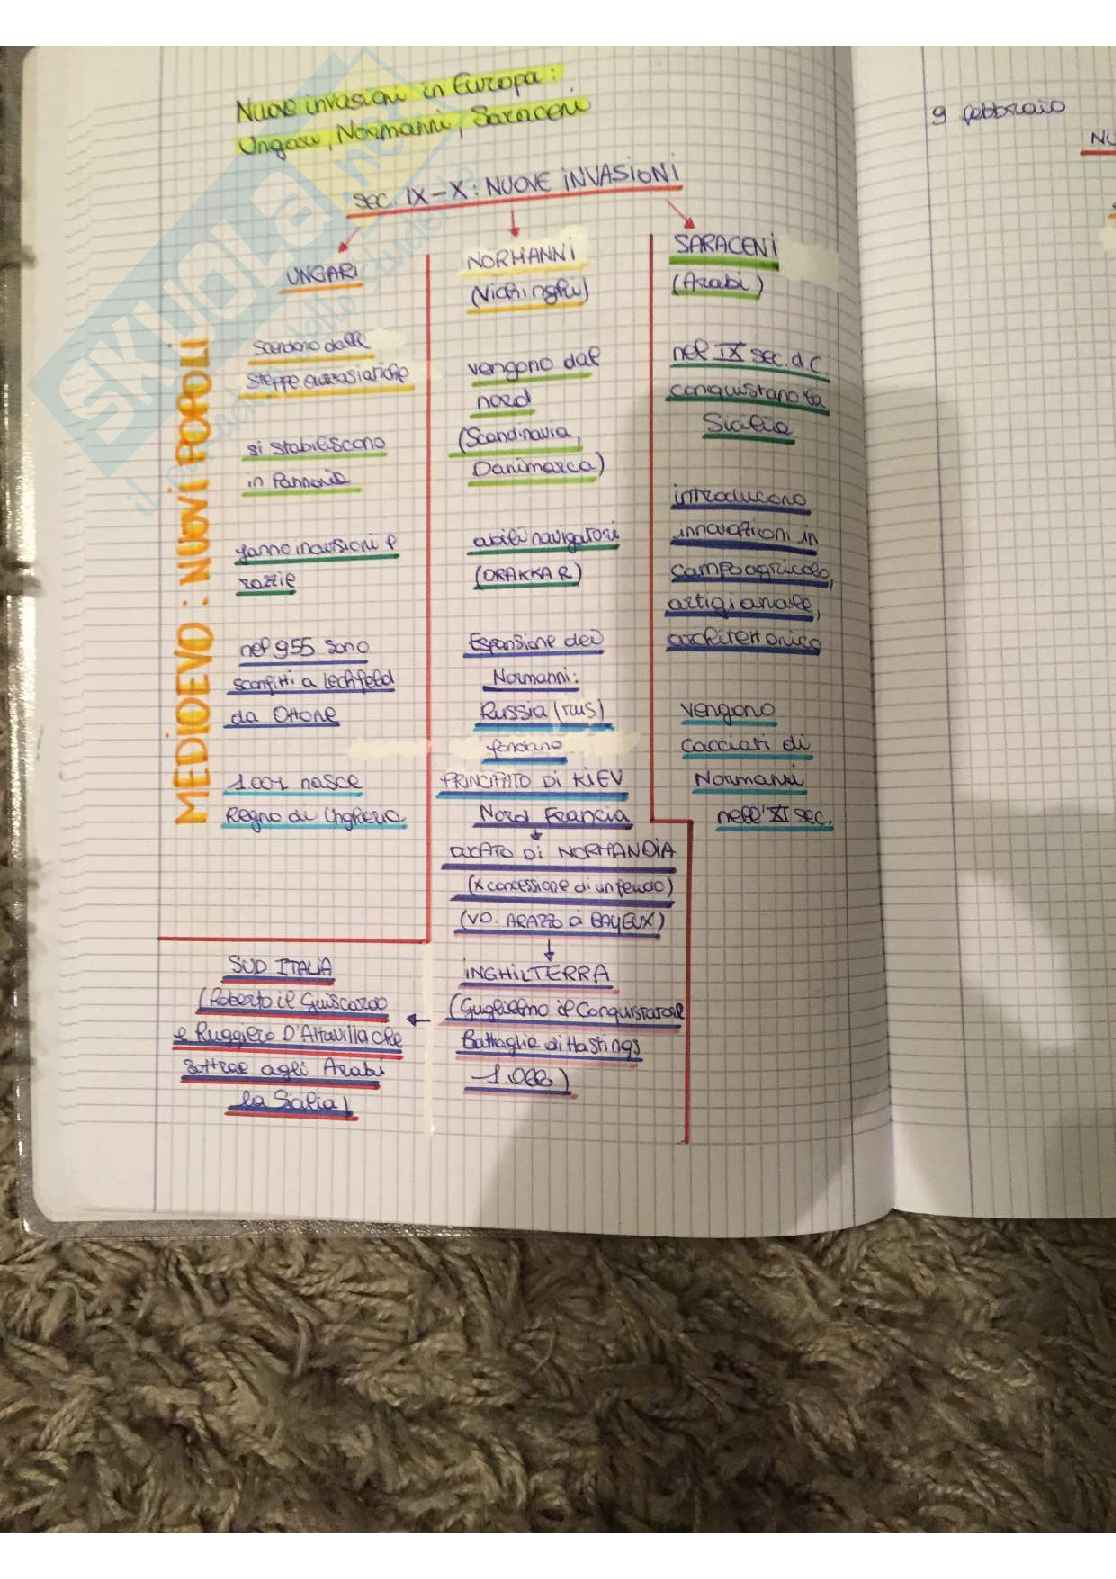 Nuove invasioni in Europa:
Ungari, Normanni, Saraceni
sec. IX-X: NUOVE iNVASiONI
MEDIOEVO: NUOVI POPOLI
UNGARI
Scendono dalle
steppe euroasiatiche
si stabiliscono
in Pannonia
fanno incursioni e
razzie
nel 955 sono
sconfitti a Lechfeld
da Ottone
1001 nasce
Regno di Ungheria
NORMANNi
(Vichinghi)
vengono dal
nord
(Scandinavia,
Danimarca)
abili navigatori
(DRAKKAR)
Espansione dei
Normanni:
Russia (rus)
fondano
PRINCIPATO Di KiEV
Nord Francia
DUCATO Di NORMANDiA
(x concessione di un feudo)
(VD. ARAZZO di BAYEUX)
iNGHiLTERRA
(Guglielmo il Conquistatore
Battaglia di Hastings
1.066)
SUD ITALIA
(Roberto il Guiscardo
e Ruggero D'Altavilla che
sottrae agli Arabi
la Sicilia)
SARACENi
(Arabi)
nel IX sec. d.C
conquistano la
Sicilia
introducono
innovazioni in
campo agricolo,
artigianale,
architettonico
vengono
cacciati di
Normanni
nell'XI sec.
9 febbraio
NU
SKUOLA.net